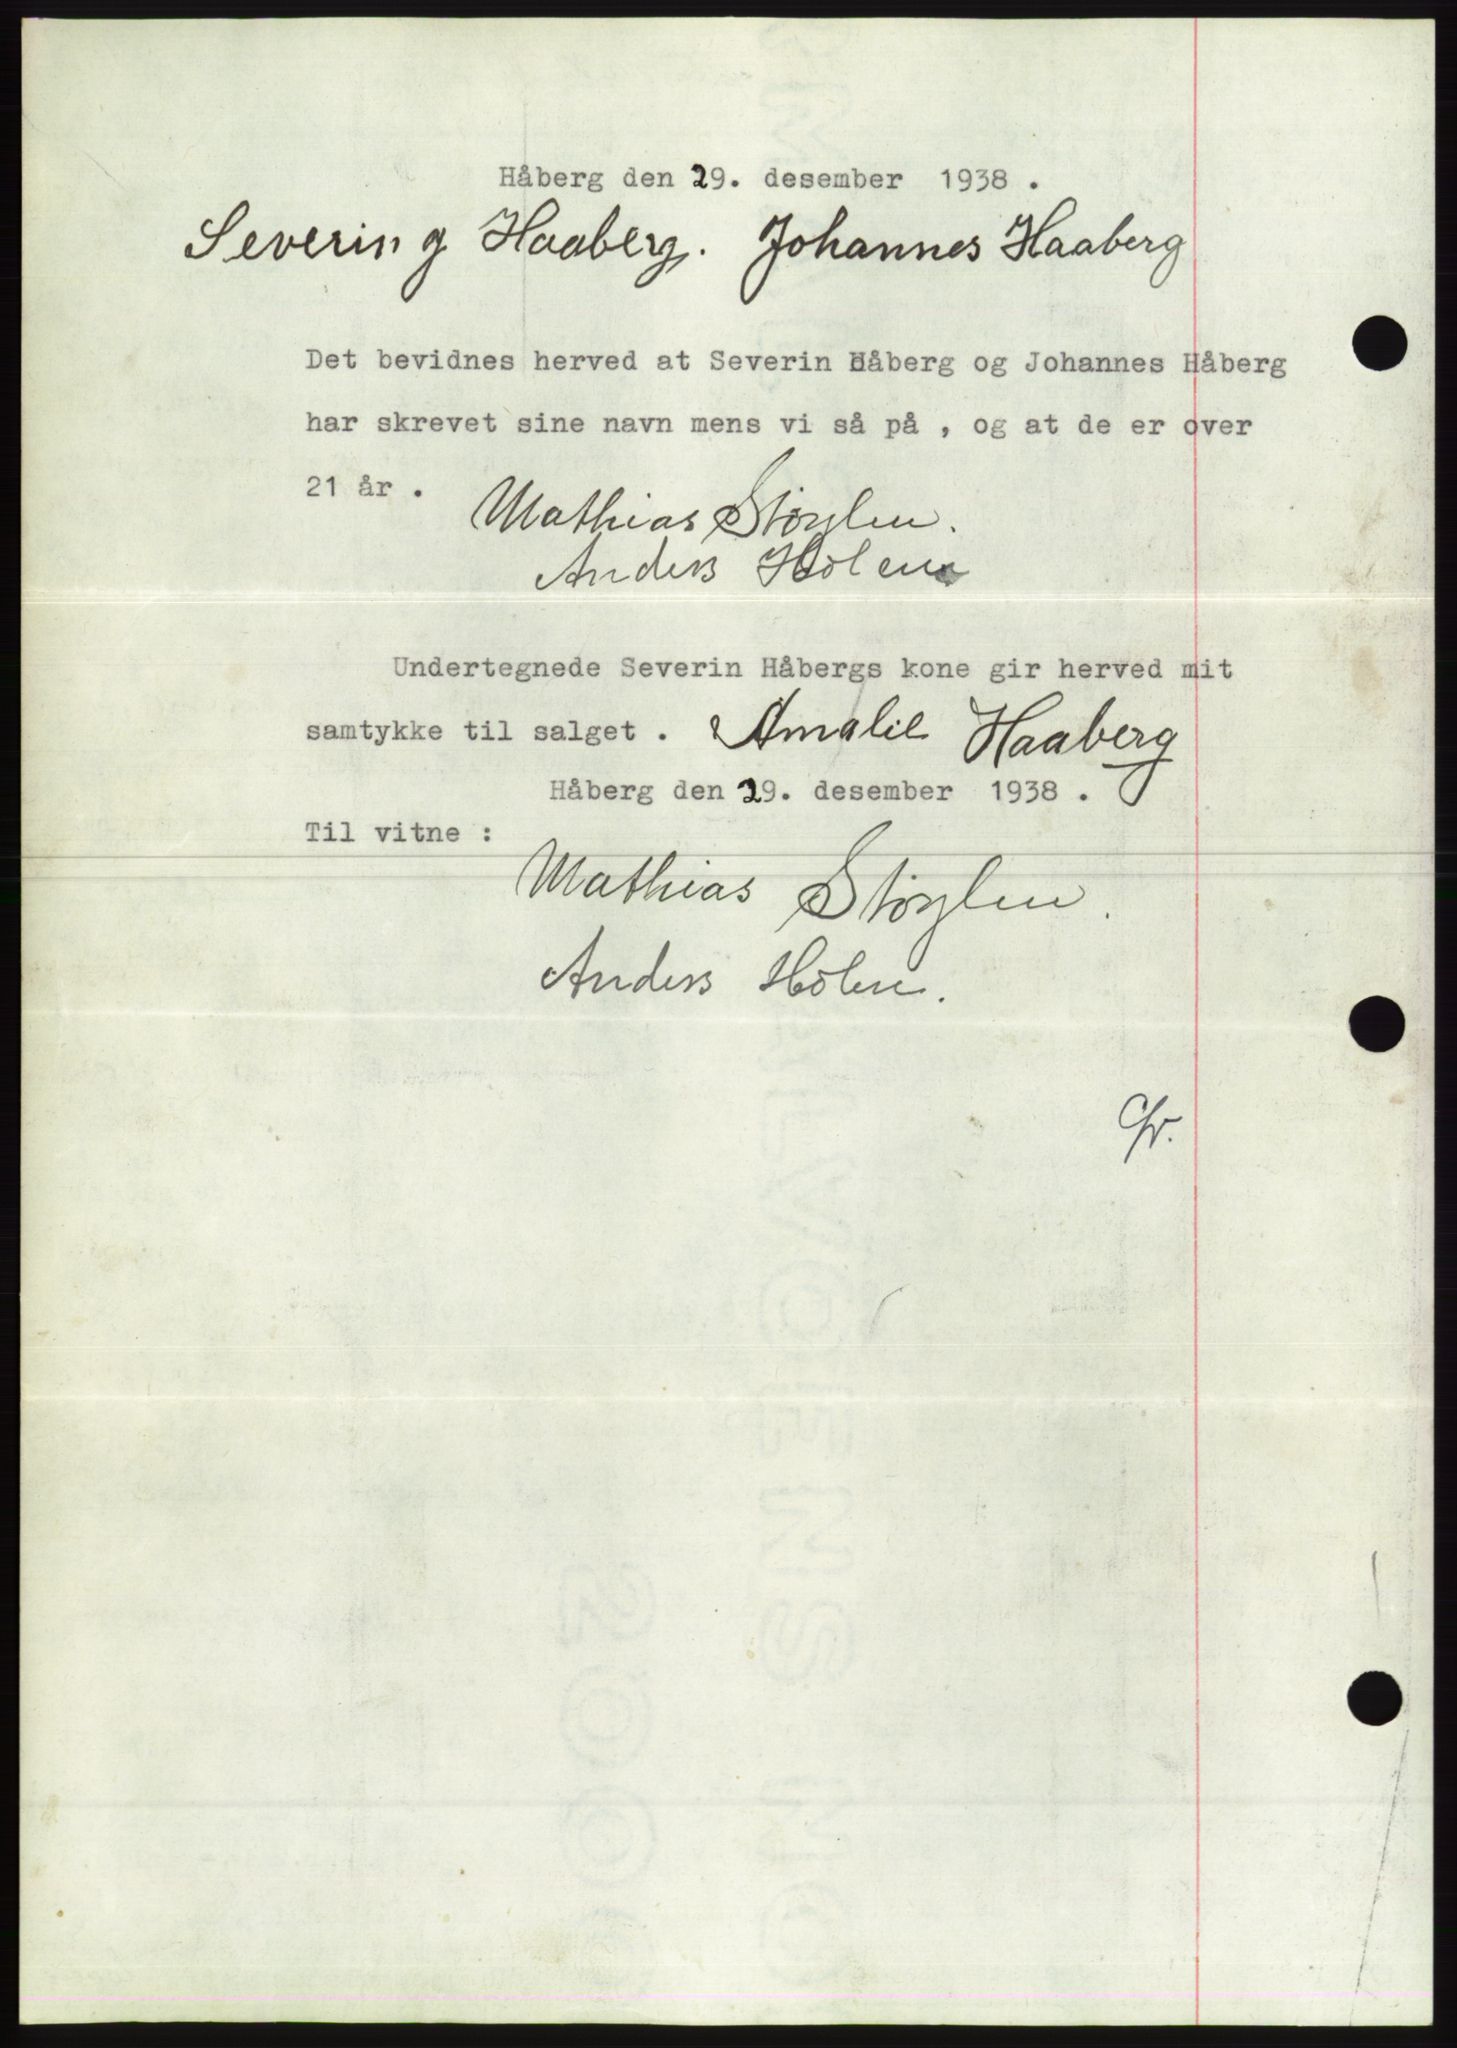 Håberg den 29. desember 1938 .
Severin g Haaberg. Johannes Haaberg
Det bevidnes herved at Severin Håberg og Johannes Håberg
har skrevet sine navn mens vi så på , og at de er over
21 år .
Mathias Støylen.
Anders Holen
Undertegnede Severin Håbergs kone gir herved mit
samtykke til salget . Amalie Haaberg
Håberg den 29. desember 1938 .
Til vitne :
Mathias Støylen.
Anders Holen.